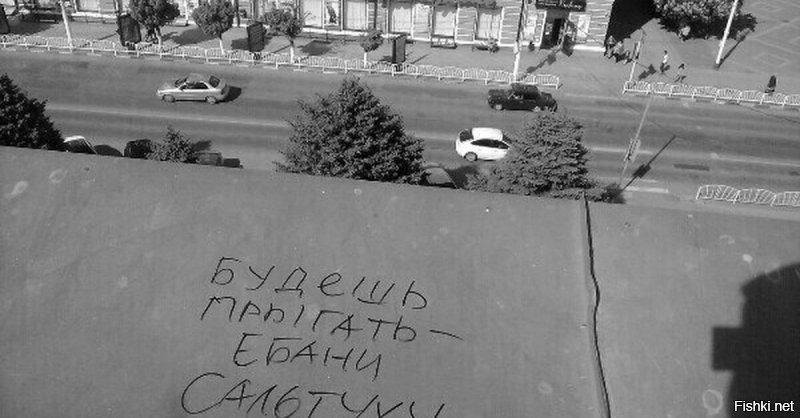 БУДЕШЬ
ПРЫГАТЬ —
ЕБАНИ
САЛЬТУХУ
Fishki.net